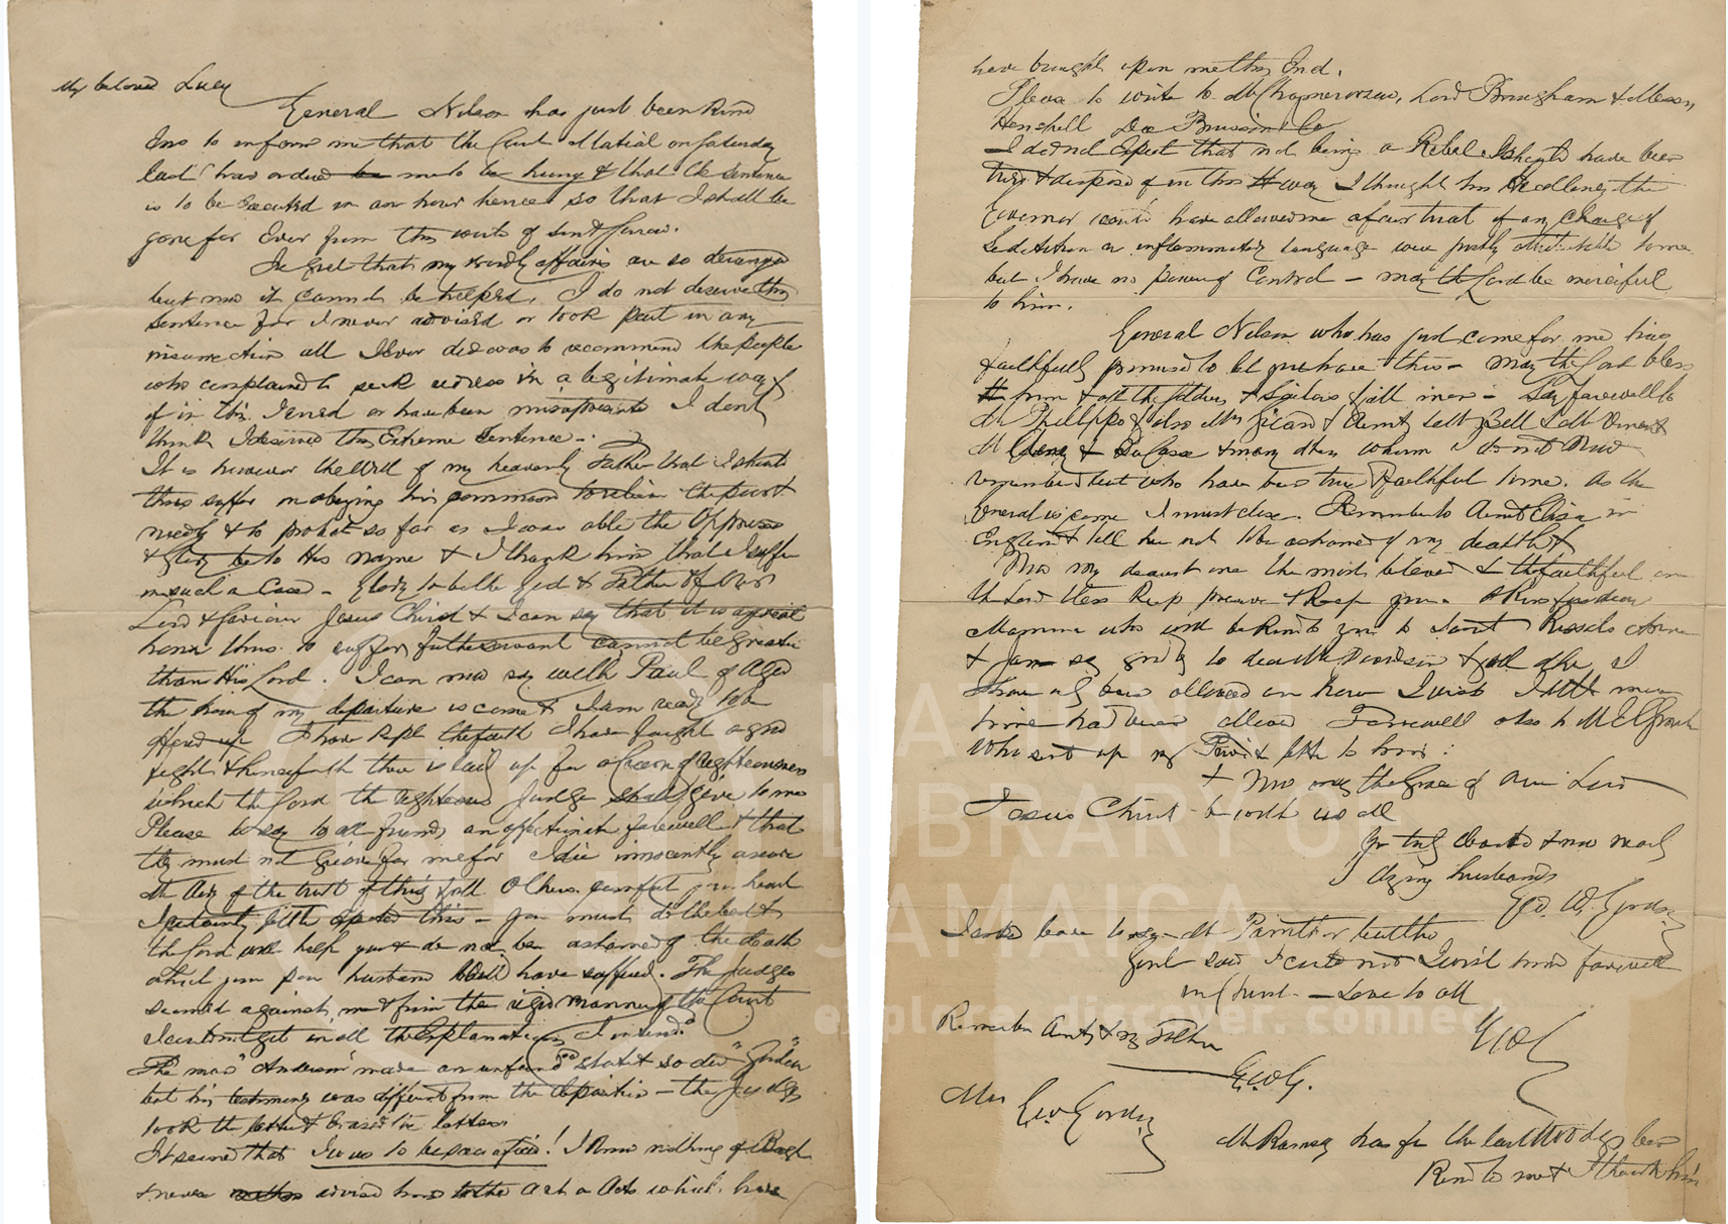 My beloved Lucy
General Nelson has just been kind
Eno to inform me that the Court Martial on Saturday
last has ordered me to be hung & that the sentence
is to be executed in an hour hence so that I shall be
gone for Ever from this world of sin & sorrow.
I regret that my worldly affairs are so deranged
but now it cannot be helped. I do not deserve this
sentence for I never advised or took part in any
insurrection all I Ever did was to recommend the people
who complained to seek redress in a legitimate way &
if in this I erred or have been misrepresented I don't
think I deserved this Extreme Sentence -
It is however the will of my heavenly Father that I should
thus suffer in obeying his command to relieve the poor &
needy & to protect so far as I was able the Oppressed
& glory be to His name & I thank him that I suffer
in such a Cause - Glory to be the God & Father of Our
Lord & Saviour Jesus Christ & I can say that it is a great
honor thus to suffer for the servant cannot be greater
than His Lord. I can now say with Paul of Aged
the hour of my departure is come & I am ready to be
offered up I have kept the faith I have fought a good
fight & henceforth there is laid up for a Crown of righteousness
which the Lord the righteous Judge shall give to me
Please to say to all friends an affectionate farewell & that
they must not grieve for me for I die innocently
of the truth of this & all Others. comfort your heart
I certainly little expected this - You must do the best &
the Lord will help you & do not be ashamed of the death
which your poor husband will have suffered. The Judges
seemed against me & from the rigid manner of the Court
I could not get in all the Explanation I intend.
The man "Anderson" made an unfounded statet & so did "Gordon"
but his testimony was different from the deposition - the Judges
took the letter &
It seemed that I was to be sacrificed! I know nothing of Bogle
& never advised him to the Act or Acts which have
have brought upon me this End.
Please to write to Mr Chamerovzow, Lord Brougham & Messrs
Henshell
I did not Expect that not being a Rebel I should have been
tried & disposed of in this way I thought his Excellency the
Governor would have allowed me a fair trial if any charge of
Sedition or inflammatory language were justly attributable to me
but I have no power of Control - may the Lord be merciful
to him.
General Nelson who has just come for me has
faithfully promised to let you have this - May the Lord bless
him & all the Soldiers & Sailors & all men - Say farewell to
Mr Phillippo & also Mr Ricard & Aunt
& many others whom I do not now
remember but who have been true & faithful to me. As the
General is come I must close. Remember to Aunt Eliza in
England & tell her not to be ashamed of my death &
Now my dearest one the most beloved & the faithful one
the Lord bless keep preserve & Keep you. A kiss for dear
Mamma who will be kind to you & to Janet Kisses
& Jane say good by to dear Mr Davidson & all others I
have only been allowed one hour I wish I little more
time had been allowed Farewell also to Mr
who sent up my Private letter to him:
& Now may the Grace of our Lord
Jesus Christ be with us all
Yr truly devoted & now nearly
dying husband
Geo. W. Gordon
I asked leave to see Mr Panther but the
Genl said I could not I wish him farewell
in Christ. - Love to all
Remember Aunty & my Father
G.W.G.
Mrs
Geo Gordon
Mr Ramsay has for the last two days been
Kind to me & I thank him